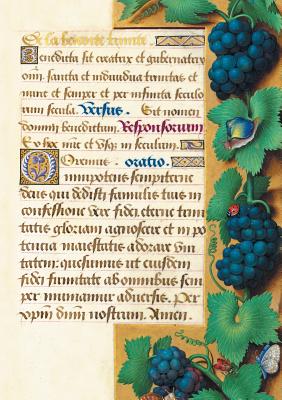 De la benoiste trinite.
Benedicta sit creatrix et gubernatrix
omniū. sancta et indiuidua trinitas et
nunc et semper et per infinita seculo
rum secula. Versus. Sit nomen
domini benedictum. Responsorium
Ex hoc nūc et vsq; in seculum.
Oremus. oratio.
Omnipotens sempiterne
deus qui dedisti famulis tuis in
confessione vere fidei eterne trini
tatis gloriam agnoscere et in po
tencia maiestatis adorare vni
tatem: quesumus ut eiusdem
fidei firmitate ab omnibus sem
per muniamur aduersis. Per
xpm̄ dn̄m nostrum. Amen.